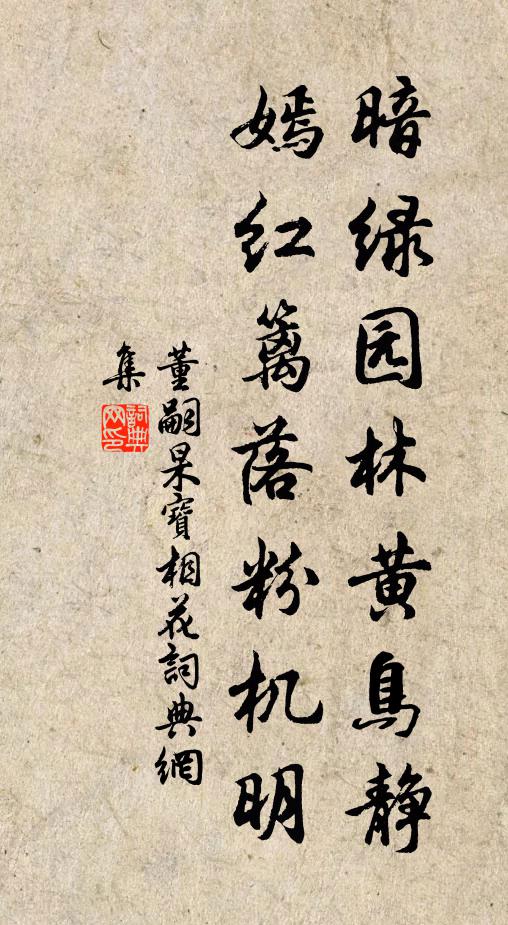 暗绿园林黄鸟静
嫣红篱落粉机明
董嗣杲寶相花詞典網
集
詞典網印